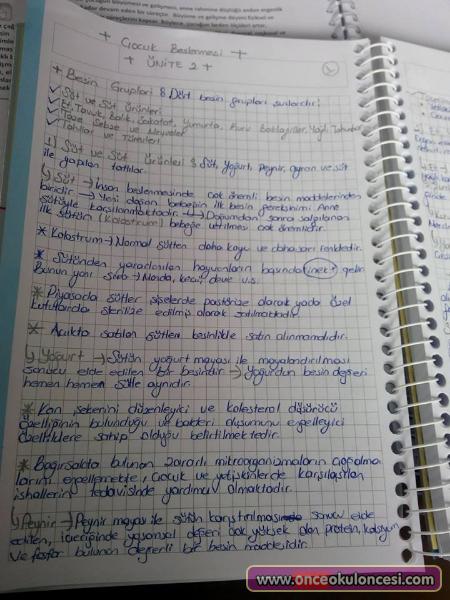 + Çocuk Beslenmesi +
+ ÜNİTE 2 +
+ Besin Grupları: Dört besin grupları şunlardır:
✓ Süt ve Süt Ürünleri
✓ Et, Tavuk, Balık, Sakatat, Yumurta, Kuru Baklagiller, Yağlı Tohumlar
✓ Taze Sebze ve Meyveler
✓ Tahıllar ve Türevleri
1) Süt ve Süt Ürünleri: Süt, Yoğurt, Peynir, ayran ve süt
ile yapılan tatlılar.
Süt → İnsan beslenmesinde çok önemli besin maddelerinden
biridir. → Yeni doğan bebeğin ilk besin gereksinimi Anne
Sütüyle karşılanmaktadır. → Doğumdan sonra salgılanan
ilk sütün (Kolostrum) bebeğe verilmesi çok önemlidir.
* Kolostrum → Normal sütten daha koyu ve daha sarı renktedir.
* Sütünden yararlanılan hayvanların başında inek gelir
Bunun yanı sıra → Manda, keçi, deve v.s.
* Piyasada sütler şişelerde pastörize olarak yada özel
kutularda sterilize edilmiş olarak satılmaktadır.
* Açıkta satılan sütler kesinlikle satın alınmamalıdır.
Yoğurt → Sütün yoğurt mayası ile mayalandırılması
sonucu elde edilen bir besindir. → Yoğurdun besin değeri
hemen hemen sütle aynıdır.
* Kan şekerini düzenleyici ve kolesterol düşürücü
özelliğinin bulunduğu ve bakteri oluşumunu engelleyici
özelliklere sahip olduğu belirtilmektedir.
* Bağırsakta bulunan zararlı mikroorganizmaların çoğalma
larını engellemekte, çocuk ve yetişkinlerde karşılaşılan
ishallerin tedavisinde yardımcı olmaktadır.
Peynir → Peynir mayası ile sütün karıştırılması sonucu elde
edilen, içeriğinde yaşamsal değeri çok yüksek olan protein, kalsiyum
ve fosfor bulunan değerli bir besin maddesidir.
www.onceokuloncesi.com